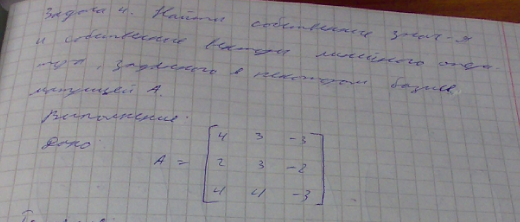 Задача 4. Найти собственные знач-я
и собственные векторы линейного опера-
тора, заданного в некотором базисе
матрицей А.
Выполнение:
Дано:
A = [ 4 3 -3
2 3 -2
4 4 -3 ]